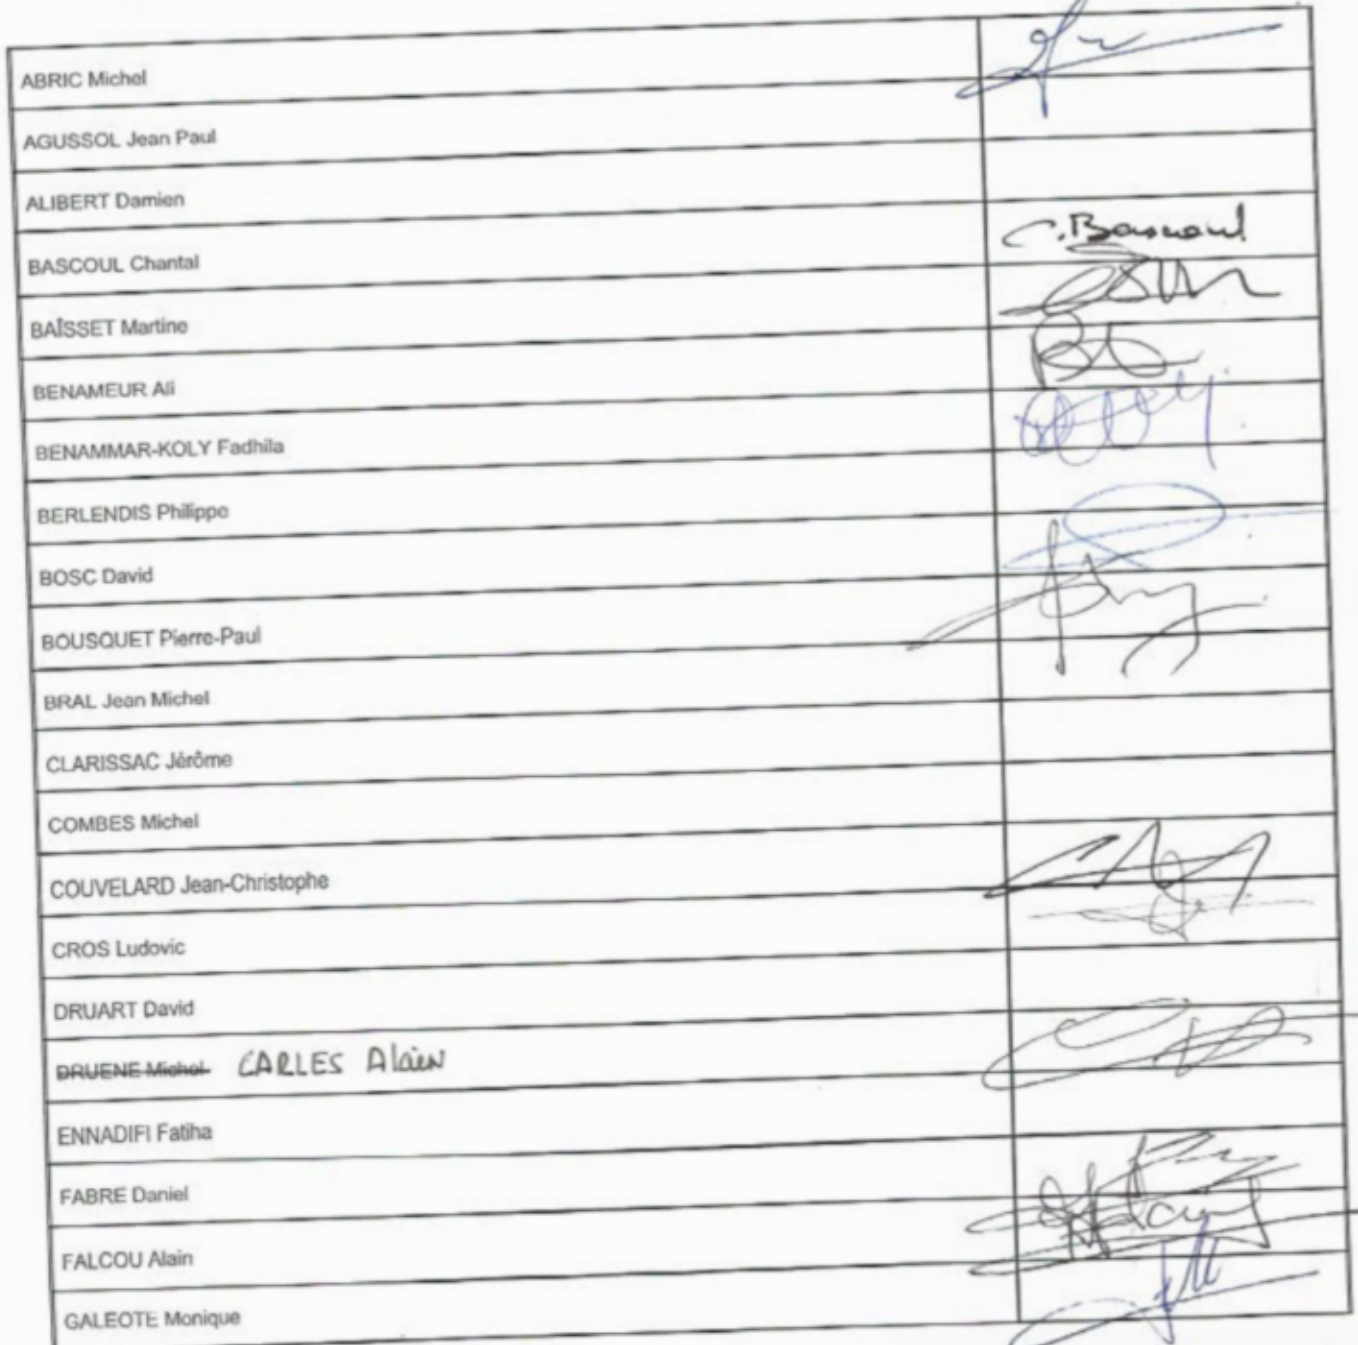 ABRIC Michel
AGUSSOL Jean Paul
ALIBERT Damien
BASCOUL Chantal C. Bascoul
BAÏSSET Martine
BENAMEUR Ali
BENAMMAR-KOLY Fadhila
BERLENDIS Philippe
BOSC David
BOUSQUET Pierre-Paul
BRAL Jean Michel
CLARISSAC Jérôme
COMBES Michel
COUVELARD Jean-Christophe
CROS Ludovic
DRUART David
DRUENE Michel CARLES Alain
ENNADIFI Fatiha
FABRE Daniel
FALCOU Alain
GALEOTE Monique